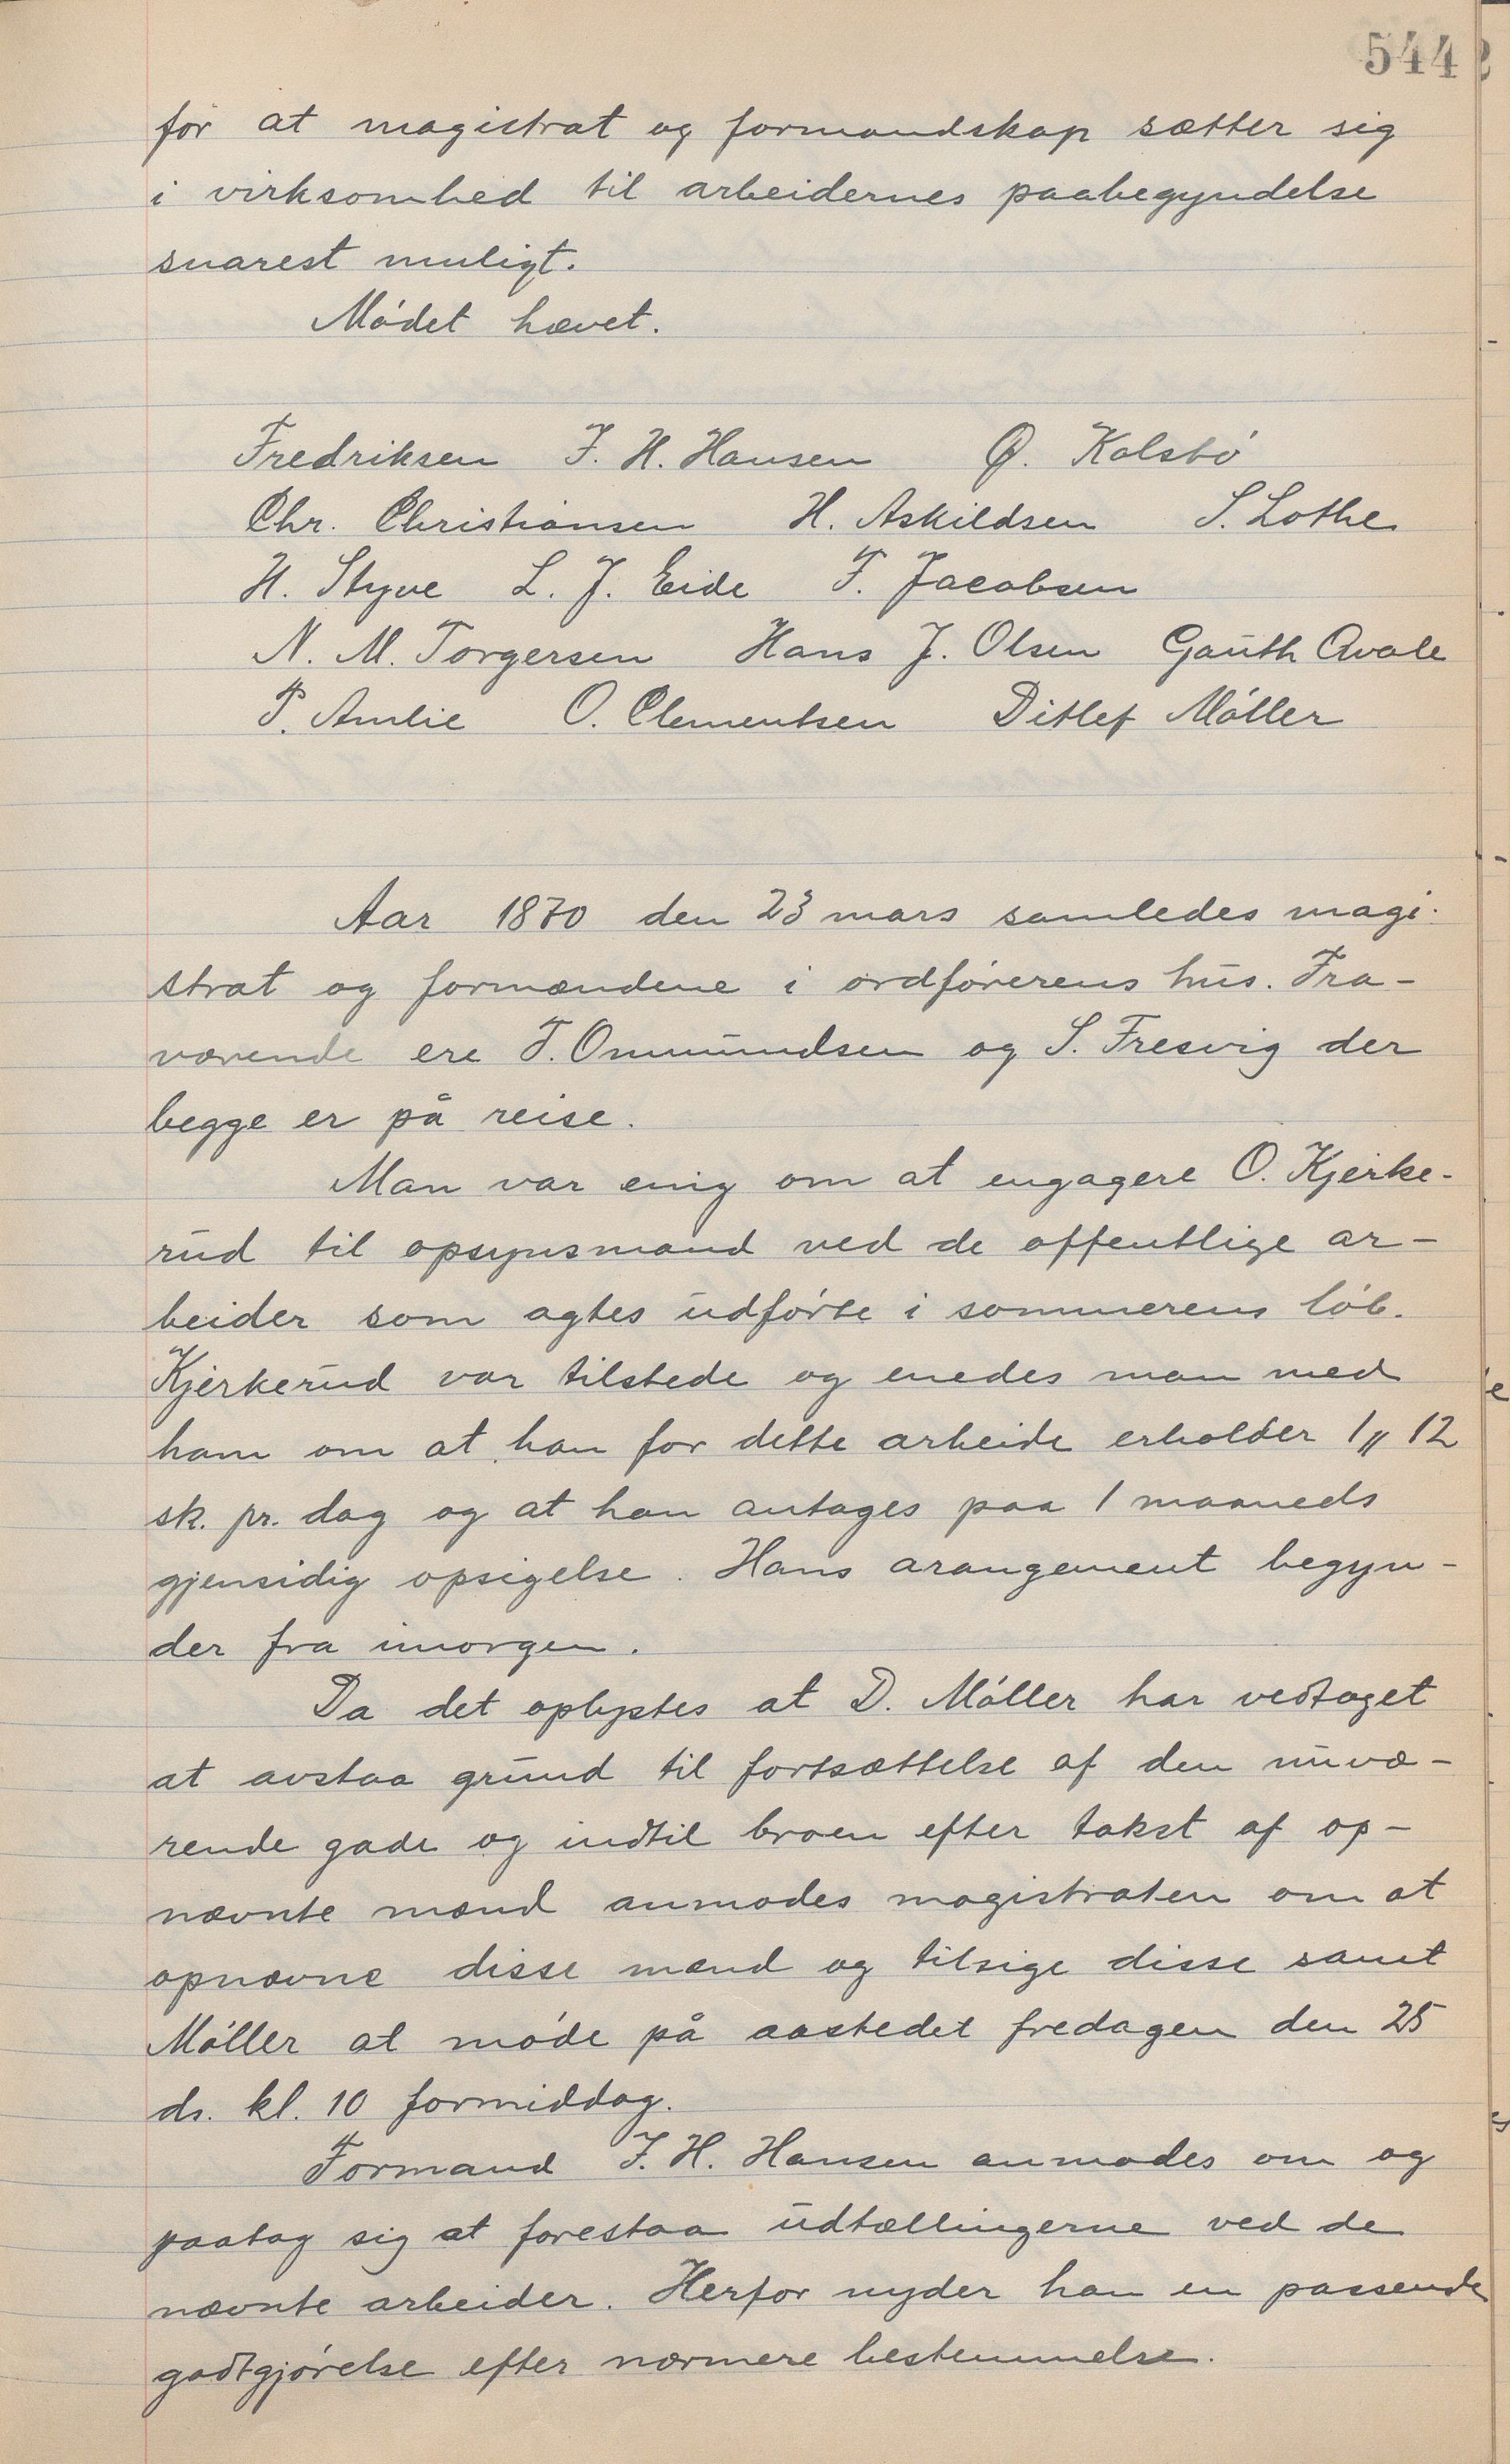 544
for at magistrat og formandskap sætter sig
i virksomhed til arbeidernes paabegyndelse
snarest muligt.
Mödet hævet.
Fredriksen J. H. Hansen Q. Kalstö
Chr. Christiansen H. Askildsen S. Lothe
H. Styve L. J. Eide F. Jacobsen
N. M. Torgersen Hans J. Olsen Gauth Qvale
P. Amlie O. Clementsen Ditlef Möller
Aar 1870 den 23 mars samledes magi-
strat og formændene i ordförerens hus. Fra-
værende ere T. Ommundsen og S. Fresvig der
begge er på reise.
Man var enig om at engagere O. Kjerke-
rud til opsynsmand ved de offentlige ar-
beider som agtes udförte i sommerens löb.
Kjerkerud var tilstede og enedes man med
ham om at han for dette arbeide erholder 1 " 12
sk. pr. dag og at han antages paa 1 maaneds
gjensidig opsigelse. Hans arangement begyn-
der fra imorgen.
Da det oplystes at D. Möller har vedtaget
at avstaa grund til fortsættelse af den nuvæ-
rende gade og indtil broen efter takst af op-
nævnte mænd anmodes magistraten om at
opnævne disse mænd og tilsige disse samt
Möller at möde på aastedet fredagen den 25
ds. kl. 10 formiddag.
Formand J. H. Hansen anmodes om og
paatog sig at forestaa udtællingerne ved de
nævnte arbeider. Herfor nyder han en passende
godtgjörelse efter nærmere bestemmelse.